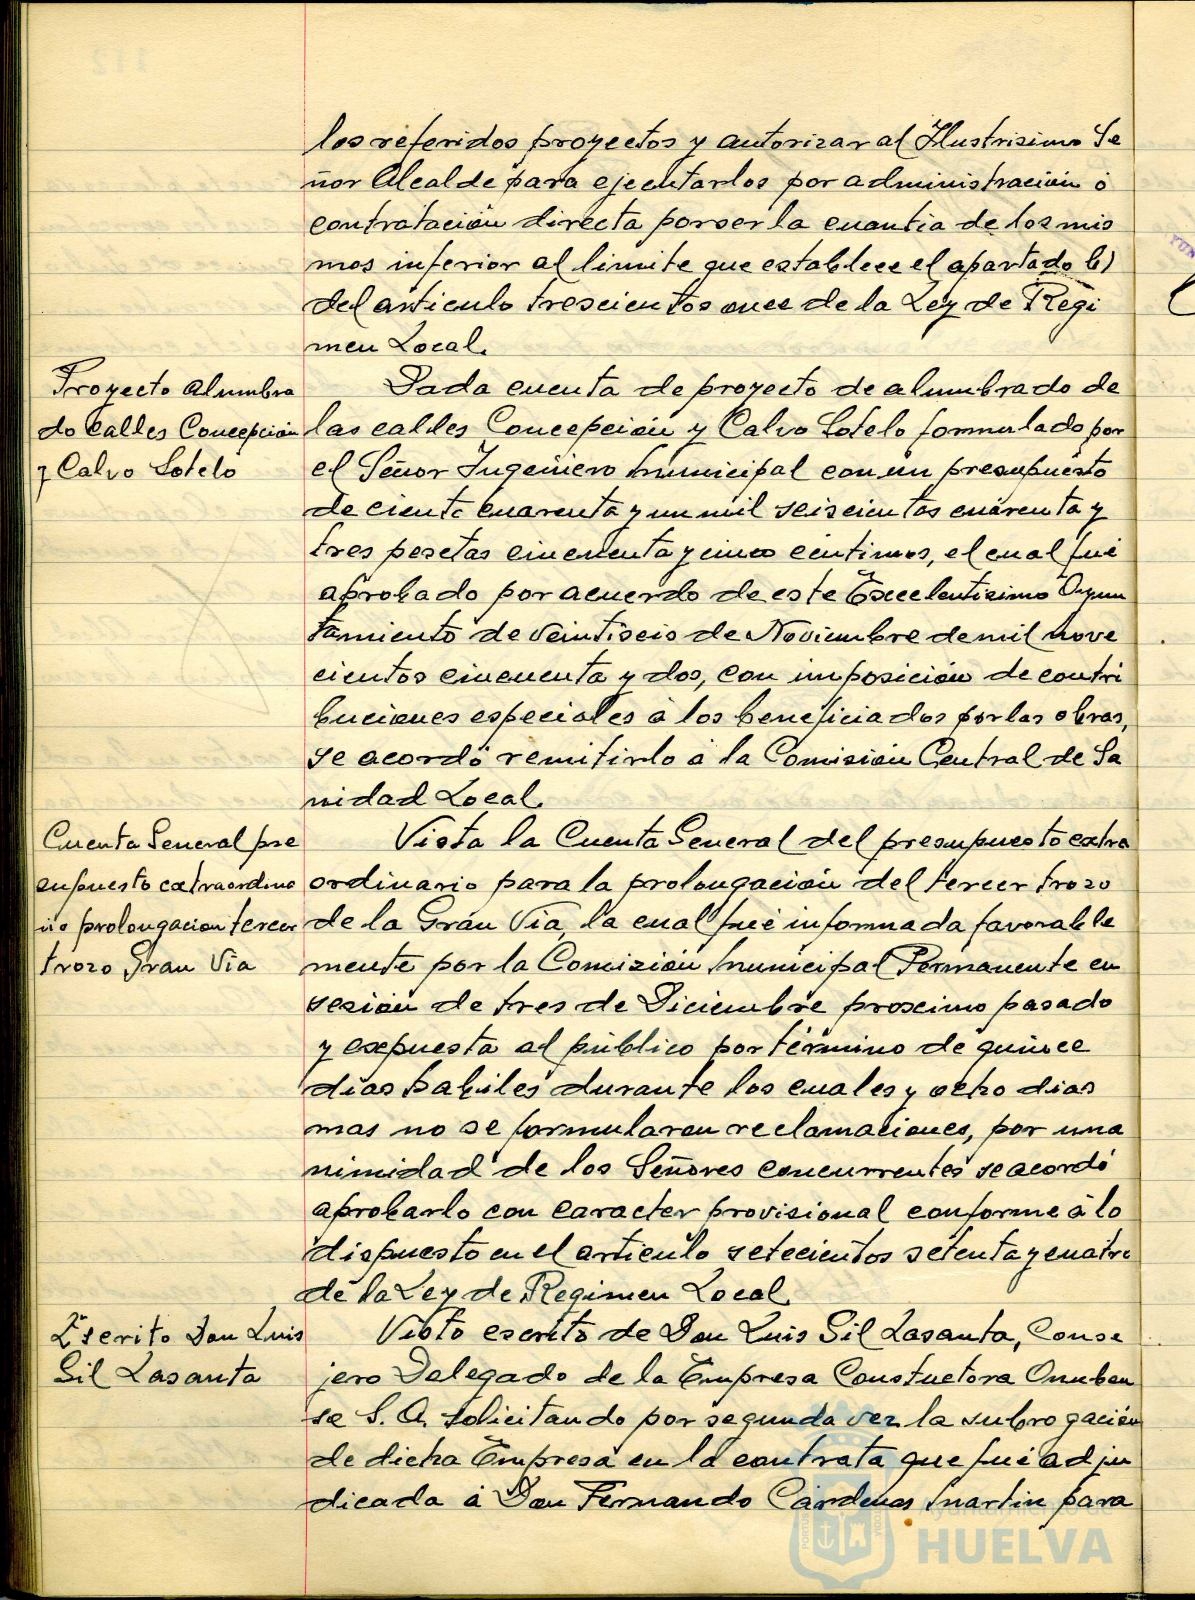 los referidos proyectos y autorizar al Ilustrisimo Se
ñor Alcalde para ejecutarlos por administración ó
contratación directa por ser la cuantia de los mis
mos inferior al limite que establece el apartado b)
del articulo trescientos once de la Ley de Regi
men Local.
Proyecto alumbra
do calles Concepción
y Calvo Sotelo
Dada cuenta de proyecto de alumbrado de
las calles Concepción y Calvo Sotelo formulado por
el Señor Ingeniero Municipal con un presupuesto
de ciento cuarenta y un mil seiscientas cuarenta y
tres pesetas cincuenta y cinco centimos, el cual fué
aprobado por acuerdo de este Excelentisimo Ayun
tamiento de veintiseis de Noviembre de mil nove
cientos cincuenta y dos, con imposición de contri
buciones especiales á los beneficiados por las obras,
se acordó remitirlo á la Comisión Central de Sa
nidad Local.
Cuenta General pre
supuesto extraordina
rio prolongacion tercer
trozo Gran Via
Vista la Cuenta General del presupuesto extra
ordinario para la prolongación del tercer trozo
de la Gran Via, la cual fué informada favorable
mente por la Comisión Municipal Permanente en
sesión de tres de Diciembre proximo pasado
y expuesta al público por término de quince
dias habiles durante los cuales y ocho dias
mas no se formularon reclamaciones, por una
nimidad de los Señores concurrentes se acordó
aprobarlo con caracter provisional conforme á lo
dispuesto en el articulo setecientos setenta y cuatro
de la Ley de Regimen Local.
Escrito Don Luis
Gil Lasanta
Visto escrito de Don Luis Gil Lasanta, Conse
jero Delegado de la Empresa Constuctora Onuben
se S. A. solicitando por segunda vez la subrogación
de dicha Empresa en la contrata que fué adju
dicada á Don Fernando Cárdenas Martin para
Ayuntamiento de
HUELVA